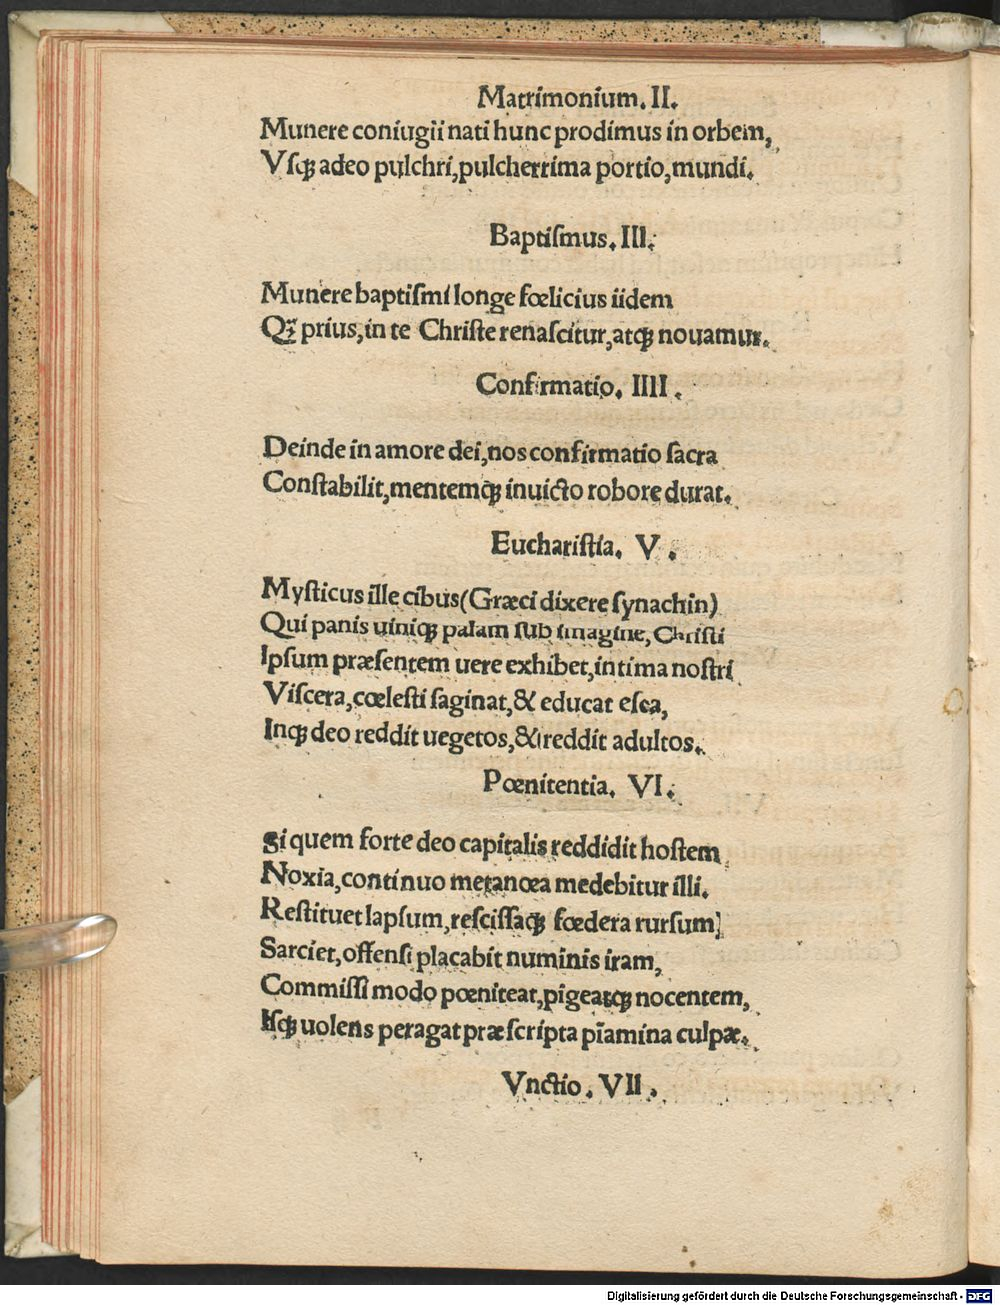 Matrimonium. II.
Munere coniugii nati hunc prodimus in orbem,
Vſqꝫ adeo pulchri, pulcherrima portio, mundi.
Baptiſmus. III.
Munere baptiſmi longe fœlicius iidem
Qꝫ̃ prius, in te Chriſte renaſcitur, atqꝫ nouamur.
Confirmatio. IIII.
Deinde in amore dei, nos confirmatio ſacra
Conſtabilit, mentemqꝫ inuicto robore durat.
Euchariſtia. V.
Myſticus ille cibus (Græci dixere ſynachin)
Qui panis uiniqꝫ palam ſub imagine, Chriſti
Ipſum præſentem uere exhibet, intima noſtri
Viſcera, cœleſti ſaginat, & educat eſca,
Inqꝫ deo reddit uegetos, & reddit adultos.
Pœnitentia. VI.
Si quem forte deo capitalis reddidit hoſtem
Noxia, continuo metanœa medebitur illi.
Reſtituet lapſum, reſciſſaqꝫ fœdera rurſum
Sarciet, offenſi placabit numinis iram,
Commiſſi modo pœniteat, pigeatqꝫ nocentem,
Iſqꝫ uolens peragat præſcripta piamina culpæ.
Vnctio. VII.
Digitalisierung gefördert durch die Deutsche Forschungsgemeinschaft - DFG